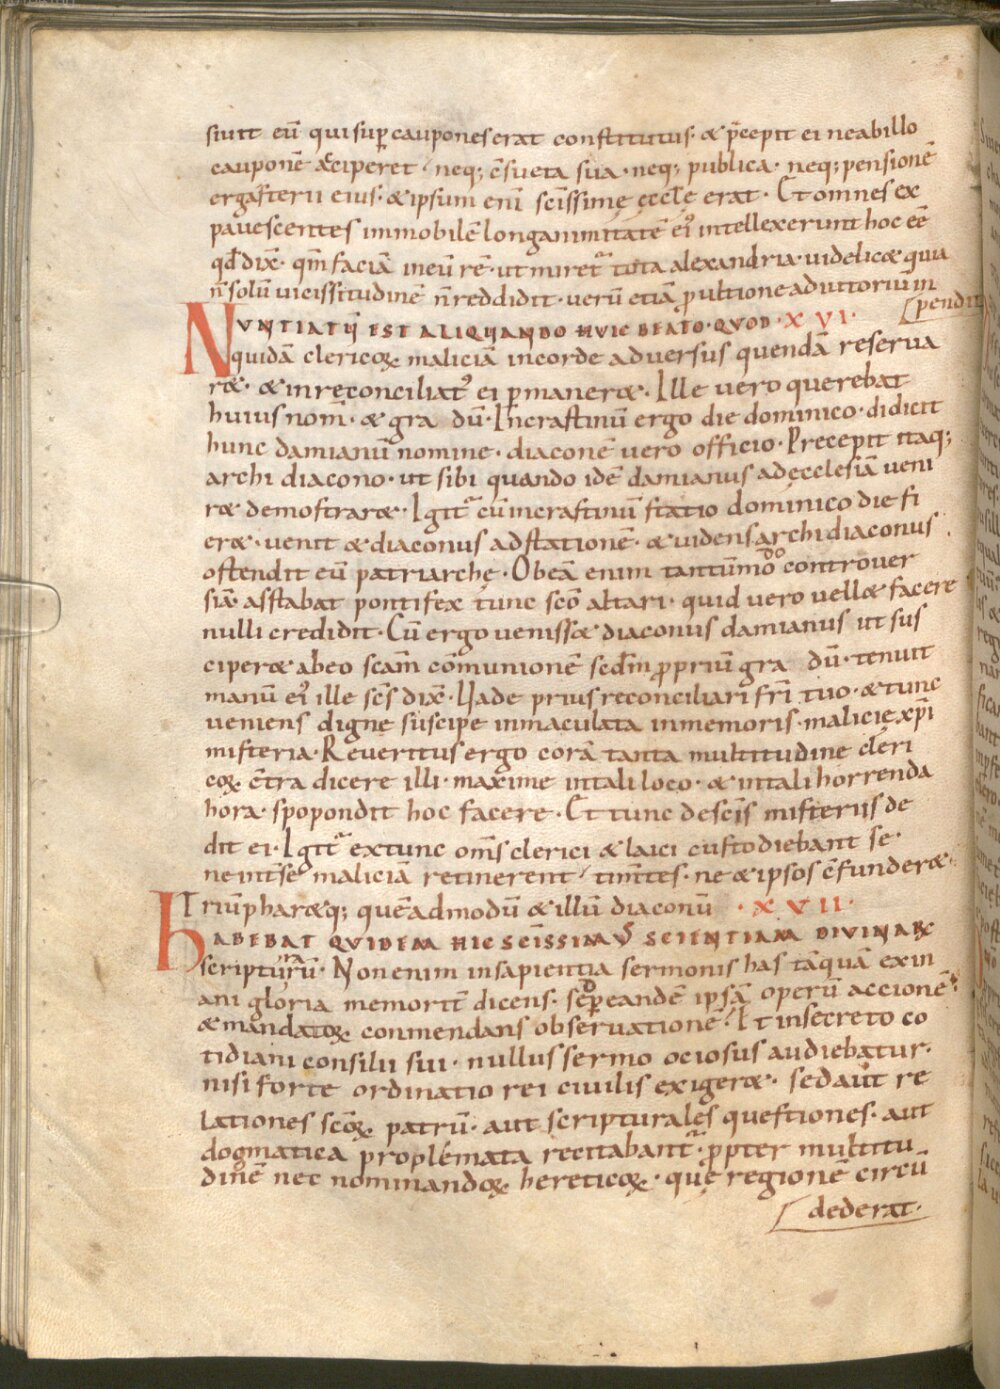 siuit eū qui sup caupones erat constitutus· & p̄cepit ei ne ab illo
cauponē acciperet· neq; c̄sueta sua· neq; publica· neq; pensionē
ergasterii eius· & ipsum enī scīssimę ęccłę erat· Et omnes ex
pauescentes immobilē longanimitatē ei' intellexerunt hoc eē
qđ dix̄· qm̄ faciā in eū rē· ut miret tota alexandria· videlic& quia
n̄ solū vicissitudinē n̄ reddidit· verū etiā p ultione adiutorium
[pendit
NUNTIATŪ EST ALIQUANDO HUIC BEATO· QUOD· XVI·
quidā clericoꝝ maliciā in corde adversus quendā reserva
r&· & inreconciliat' ei pman&· Ille vero querebat
huius nom̄· & gra dū· In crastinū ergo die dominico· didicit
hunc damianū nomine· diaconē vero officio· Precepit itaq;
archidiacono· ut sibi quando idē damianus ad ęcclesiā veni
r& demostrar&· Igit cū in crastinū statio dominico die fi
er&· venit & diaconus ad stationē· & videns archidiaconus
ostendit eū patriarchę· Ob eā enim tantūmodo controver
siā· astabat pontifex tunc scō altari· quid vero vell& facere
nulli credidit· Cū ergo veniss& diaconus damianus ut sus
ciper& ab eo scam̄ cōmunionē scdm̄ propriū gra dū· tenuit
manū ei' ille scs dix̄· Vade prius reconciliari fr̄i tuo· & tunc
veniens digne suscipe inmaculata inmemoris malicię xp̄i
misteria· Reveritus ergo corā tanta multitudine cleri
coꝝ c̄tra dicere illi· maxime in tali loco· & in tali horrenda
hora· spopondit hoc facere· Et tunc de scīs misteriis de
dit ei· Igit ex tunc oms clerici & laici custodiebant se·
ne int se maliciā retinerent· timtes· ne & ipsos c̄funder&·
Triūphar&q; quēadmodū & illū diaconū · XVII·
HABEBAT QUIDEM HIC SCĪSSIMUS SCIENTIAM DIVINARꝝ
scripturarū· Non enim in sapientia sermonis has tāquā ex in
ani gloria memorit dicens· sed p eandē ipsā operū accionē·
& mandatoꝝ conmendans observationē· Et in secreto co
tidiani consilii sui· nullus sermo ociosus audiebatur·
nisi forte ordinatio rei civilis exiger&· sed aut re
lationes scōꝝ patrū· aut scripturales questiones· aut
dogmatica proplémata recitabant· ppter multitu
dinē nec nominandoꝝ hereticoꝝ· quę regionē circū
[dederat·